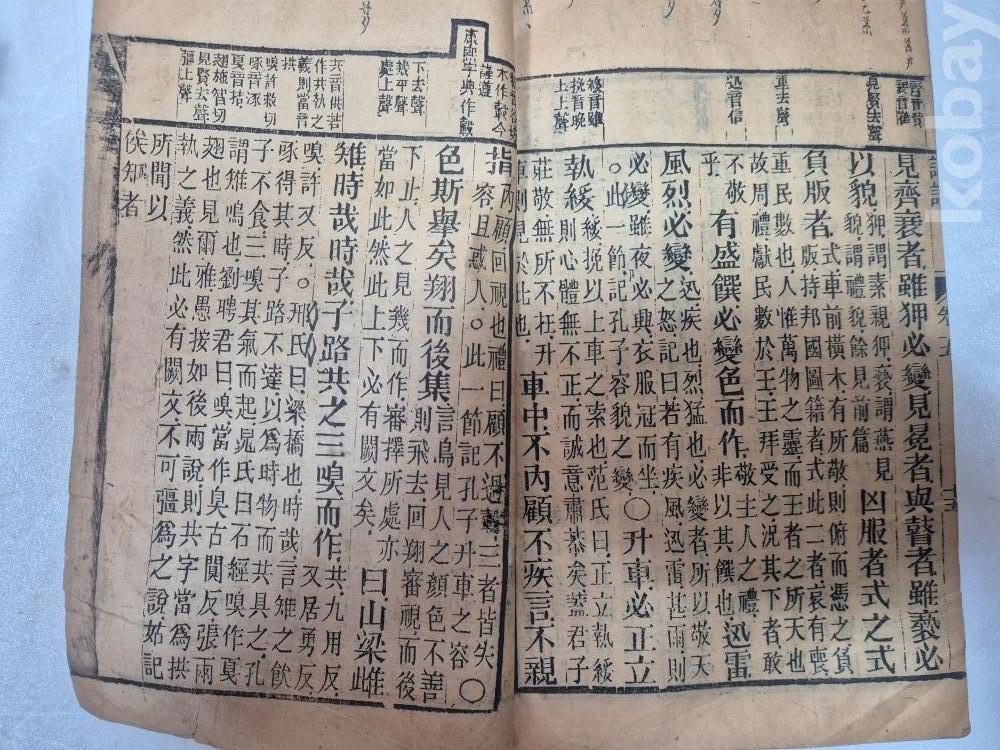 見賢去聲
重去聲
迅音信
綏音雖
挽音晚
上上聲
見齊衰者雖狎必變見冕者與瞽者雖褻必
以貌
狎謂素親狎褻謂燕見
貌謂禮貌餘見前篇
凶服者式之式
負版者
式車前橫木有所敬則俯而憑之負
版持邦國圖籍者式此二者哀有喪
重民數也人惟萬物之靈而王者之所天也
故周禮獻民數於王王拜受之況其下者敢
不敬
乎
有盛饌必變色而作
敬主人之禮
非以其饌也
迅雷
風烈必變
迅疾也烈猛也必變者所以敬天
之怒記曰若有疾風迅雷甚雨則
必變雖夜必興衣服冠而坐
○此一節記孔子容貌之變
○升車必正立
執綏
綏挽以上車之索也范氏曰正立執綏
則心體無不正而誠意肅恭矣蓋君子
莊敬無所不在升
車則見於此也
車中不內顧不疾言不親
木作轂今
謹遵
康熙字典作轂
下去聲
幾平聲
處上聲
共音供若
作共執之
義則當音
拱
嗅許救切
啄音涿
戛音拮
翅施智切
見賢去聲
彊上聲
指
內顧回視也禮曰顧不過轂三者皆失
容且惑人○此一節記孔子升車之容
○
色斯舉矣翔而後集
言鳥見人之顏色不善
則飛去回翔審視而後
下止人之見幾而作審擇所處亦
當如此然此上下必有闕文矣
曰山梁雌
雉時哉時哉子路共之三嗅而作
共九用反
又居勇反
嗅許又反○邢氏曰梁橋也時哉言雉之飮
啄得其時子路不達以爲時物而共具之孔
子不食三嗅其氣而起晁氏曰石經嗅作戛
謂雉鳴也劉聘君曰嗅當作臭古闃反張兩
翅也見爾雅愚按如後兩說則共字當爲拱
執之義然此必有闕文不可彊爲之說姑記
所聞以
俟知者
kobay